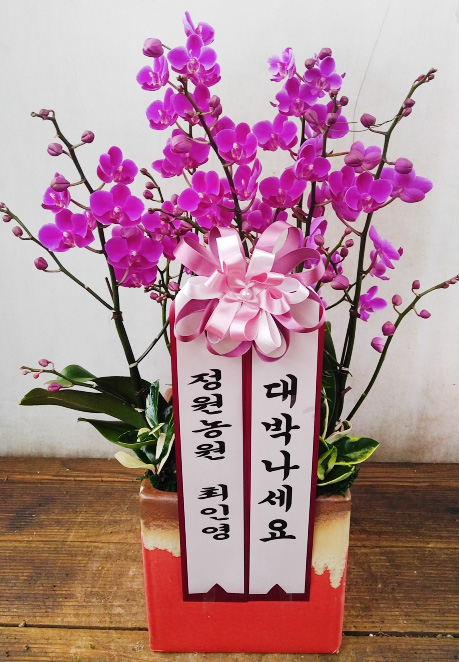 대박나세요
정원농원 최인영